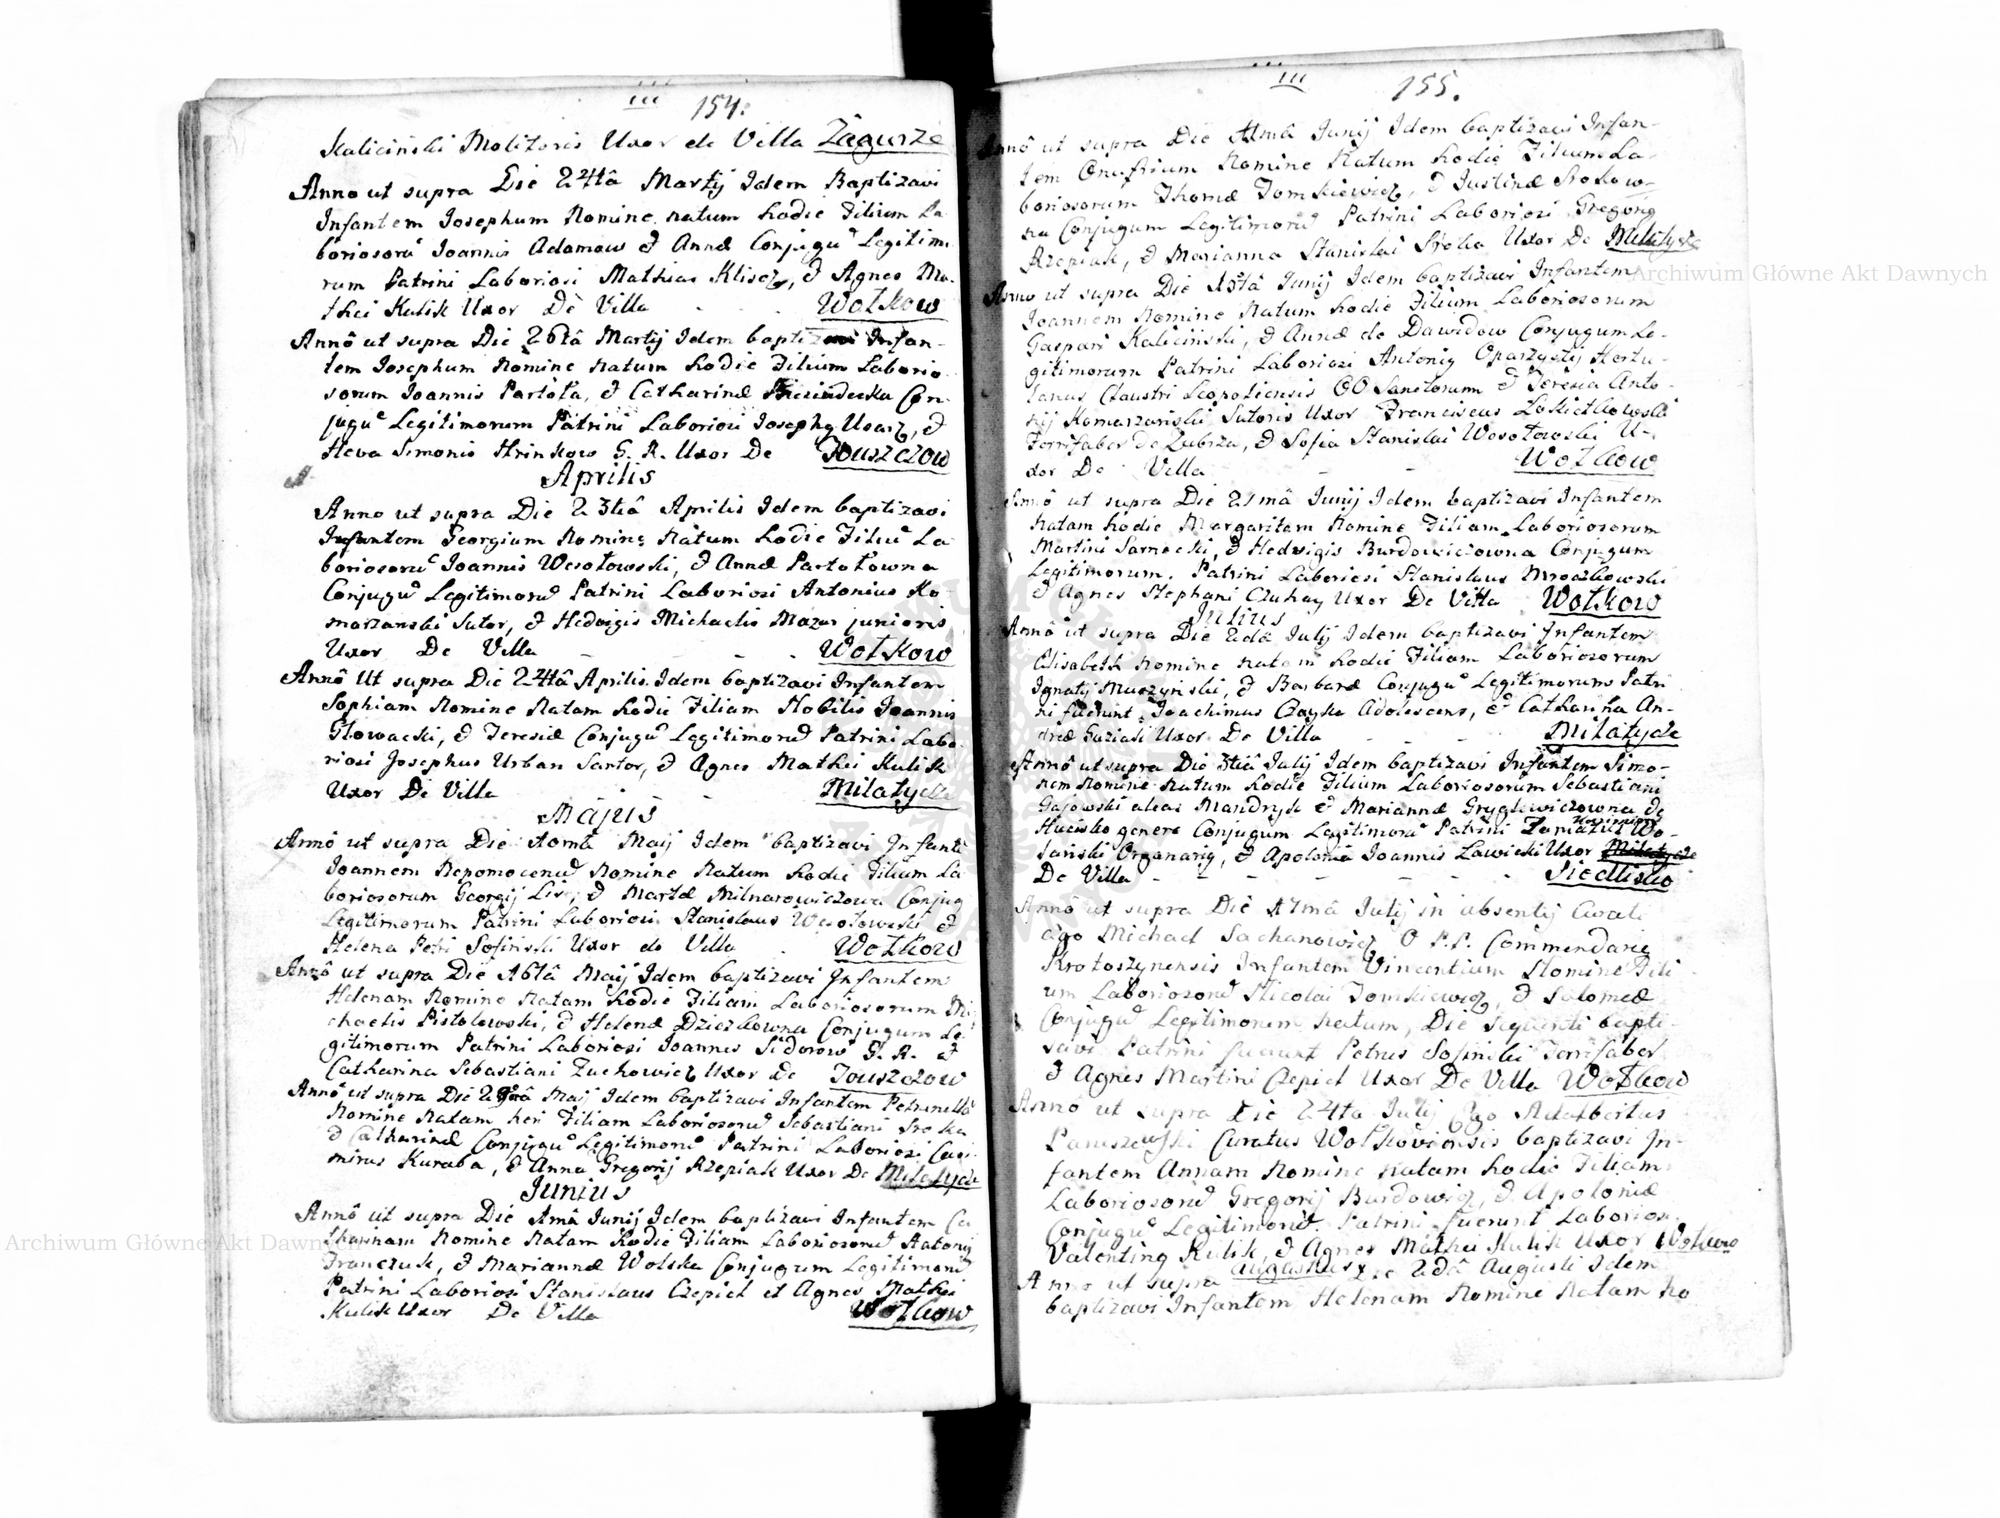 III 154.
Kaliciński Molitoris Uxor de Villa Zagurze
Anno ut supra Die 24tâ Martij Idem Baptizavi
Infantem Josephum Nomine natum hodie Filium La
boriosorũ Joannis Adamow & Annæ Conjugũ Legitimo
rum Patrini Laboriosi Mathias Klisz, & Agnes Ma-
thei Kulik Uxor De Villa Wołkow
Annô ut supra Die 26tâ Martij Idem baptizavi Infan-
tem Josephum Nomine natum hodie Filium Laborio
sorum Joannis Partoła, & Catharinæ Con-
jugũ Legitimorum Patrini Laboriosi Josephg Usarz, &
Heva Simonis Hrinkow G. R. Uxor De Touszczow
Aprilis
Anno ut supra Die 23tiâ Aprilis Idem baptizavi
Infantem Georgium Nomine Natum hodie Filiũ La
boriosorũ Joannis Wesołowski, & Annæ Partołowna
Conjugũ Legitimorũ Patrini Laboriosi Antonius Ko-
marzanski Sutor, & Hedvigis Michaelis Mazur junioris
Uxor De Villa Wołkow
Annô Ut supra Die 24tâ Aprilis Idem baptizavi Infantem
Sophiam Nomine Natam hodie Filiam Nobilis Joannis
Głowacki, & Teresiæ Conjugũ Legitimorũ Patrini Labo-
riosi Josephus Urban Sartor, & Agnes Mathei Kulik
Uxor De Villa Milatycze
Majus
Annô ut supra Die Maij Idem baptizavi Infantẽ
Joannem Nepomocenũ Nomine Natum hodie Filium La
boriosorum Georgij Lis, & Marthæ Milnarowiczowa Conjug
Legitimorum Patrini Laboriosi Stanislaus Wesołowski &
Helena Petri Sosiński Uxor de Villa Wołkow
Annô ut supra Die 16tâ Maij Idem baptizavi Infantem
Helenam Nomine Natam hodie Filiam Laboriosorum Mi
chaelis Pistolowski, & Helenæ Conjugum Le
gitimorum Patrini Laboriosi Joannes Sidorow G. R. &
Catharina Sebastiani Zuchowicz Uxor De Touszczow
Annô ut supra Die Maij Idem baptizavi Infantem Petrunellã
Nomine Natam heri Filiam Laboriosorũ Sebastiani Sroka
& Catharinæ Conjugũ Legitimorũ Patrini Laboriosi Casi
mirus Kuraba, & Anna Gregorij Rzepiak Uxor De Milatycze
Junius
Annô ut supra Die Junij Idem baptizavi Infantem Ca
tharinam Nomine Natam hodie Filiam Laboriosorũ Antonij
Franczuk, & Mariannæ Wolska Conjugum Legitimorũ
Patrini Laboriosi Stanislaus Czepiel et Agnes Mathei
Kulik Uxor De Villa Wołkow
III 155.
Annô ut supra Die Junij Idem baptizavi Infan-
tem Onufrium Nomine Natum hodie Filium La-
boriosorum Thomæ Tomkiewicz, & Justinæ Srokow-
na Conjugum Legitimorũ Patrini Laboriosi Gregorig
Rzepiak, & Marianna Stanislai Sroka Uxor De Milatycze
Anno ut supra Die 13tâ Junij Idem baptizavi Infantem
Joannem Nomine Natum hodie Filium Laboriosorum
Gaspari Kaliciński, & Annæ de Dawidow Conjugum Le-
gitimorum Patrini Laboriosi Antonig Oparzystij Hortu-
lanus Claustri Leopoliensis OO Sanctorum & Teresia Anto-
nij Komarzański Sutoris Uxor Franciscus Lokietkowski
Ferrifaber De Zubrza, & Sofia Stanislai Wesołowski U-
xor De Villa Wołkow
Annô ut supra Die 21mâ Junij Idem baptizavi Infantem
Natam hodie Margaritam Nomine Filiam Laboriosorum
Martini Sarnecki, & Hedvigis Burdowiczowna Conjugum
Legitimorum. Patrini Laboriosi Stanislaus Mroczkowski
& Agnes Stephani Czuhay Uxor De Villa Wołkow
Julius
Annô ut supra Die 2dâ Julij Idem baptizavi Infantem
Elisabeth Nomine natam hodie Filiam Laboriosorum
Ignatij Muszyński, & Barbaræ Conjugũ Legitimorum Patri
ni fuerunt Joachimus Czayka Adolescens, & Catharina An-
dreæ Guziak Uxor De Villa Milatycze
Annô ut supra Die 3tiâ Julij Idem baptizavi Infantem Simo-
nem Nomine Natum hodie Filium Laboriosorum Sebastiani
Gajowski alias Mandryk & Mariannæ Gryglewiczowna de
Hucisko genere Conjugum Legitimorũ Patrini Wo-
lański Organarig, & Apolonia Joannis Lawicki Uxor Milatycze
De Villa Siedlisko
Annô ut supra Die 17mâ Julij in absentij Curati
ego Michael Sachanowicz O P.P. Commendarig
Krotoszynensis Infantem Vincentium Nomine Fili
um Laboriosorũ Nicolai Tomkiewicz, & Salomeæ
Conjugũ Legitimorum natum, Die sequenti bapti-
zavi Patrini fuerunt Petrus Sosinski Ferrifaber
& Agnes Martini Czepiel Uxor De Villa Wołkow
Annô ut supra Die 24ta Julij Ego Adalbertus
Paniszewski Curatus Wołkoviensis baptizavi In-
fantem Annam Nomine Natam hodie Filiam
Laboriosorũ Gregorij Burdowicz, & Apoloniæ
Conjugũ Legitimorũ Patrini fuerunt Laboriosi
Valenting Kulik, & Agnes Mathei Kulik Uxor Wołkow
Augustus
Anno ut supra Die 2dâ Augusti Idem
baptizavi Infantem Helenam Nomine Natam ho
Archiwum Główne Akt Dawnych
Archiwum Główne Akt Dawnych